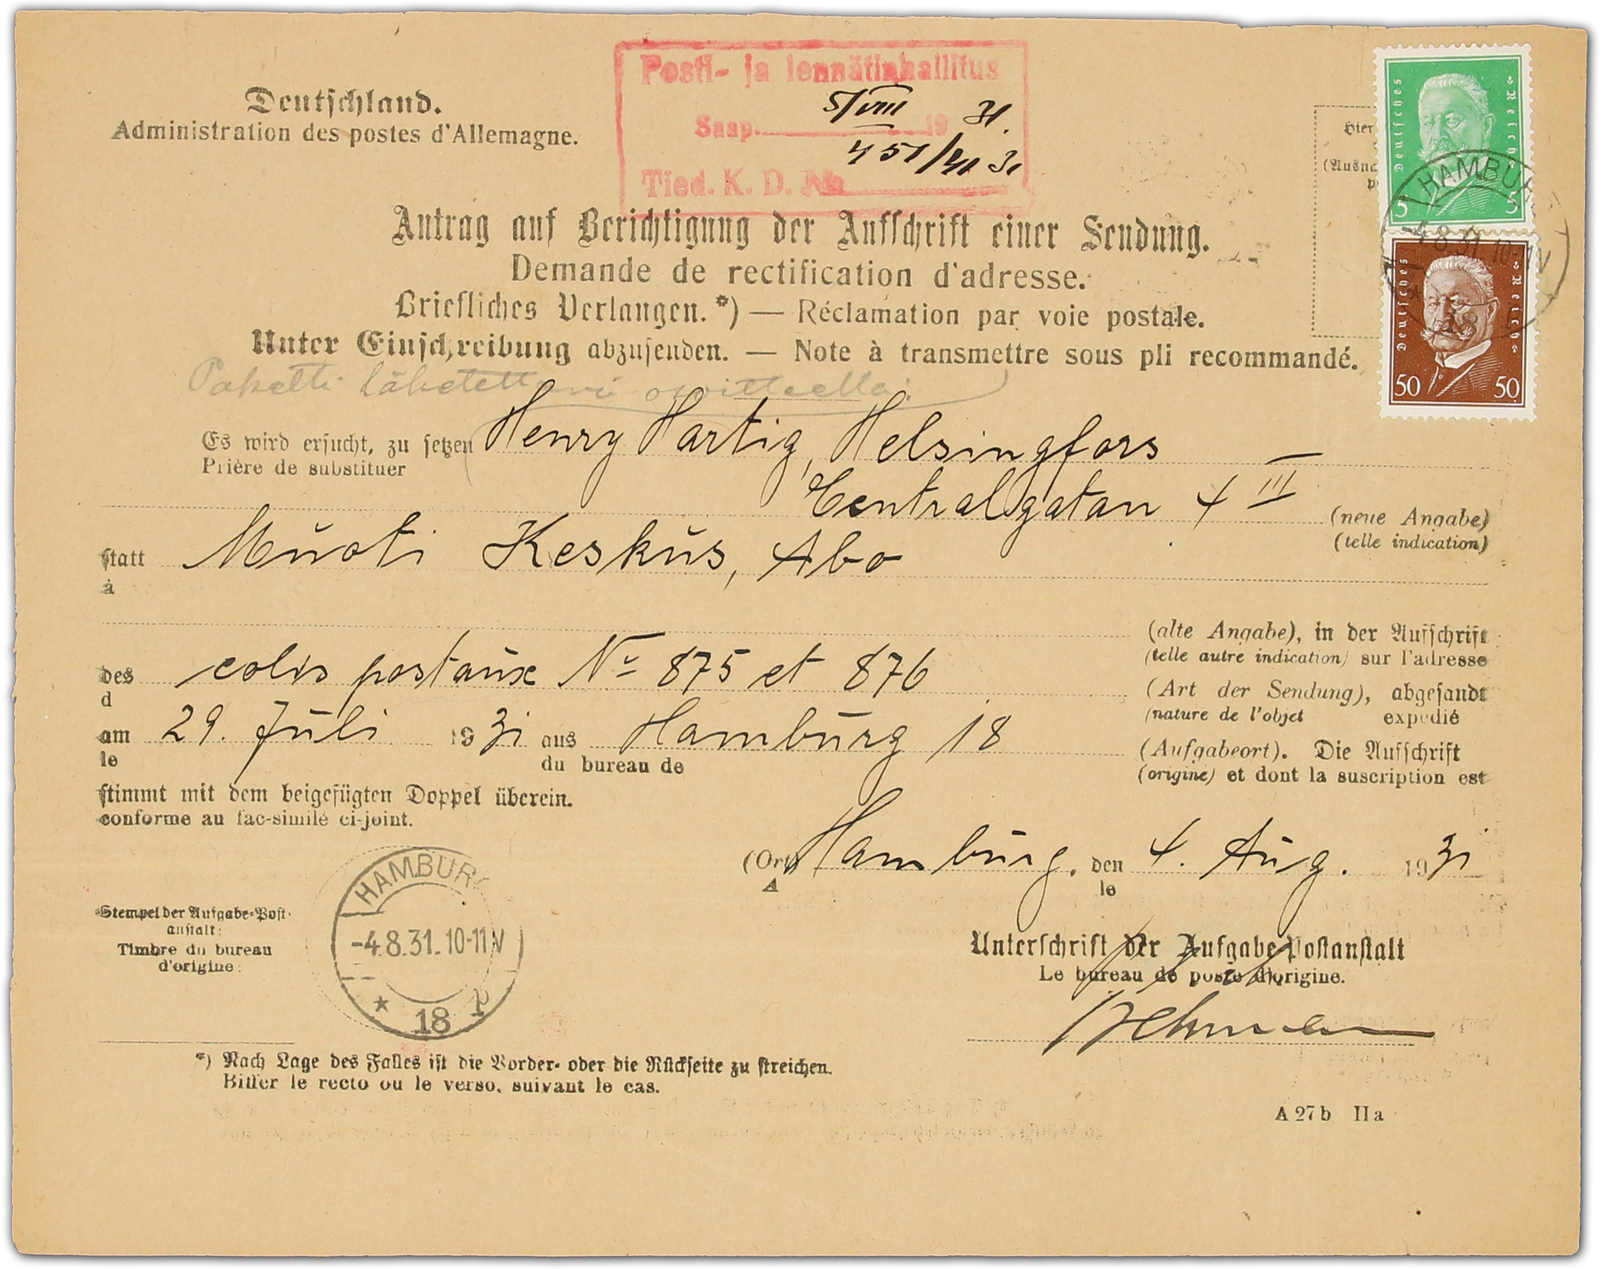 Deutschland.
Administration des postes d'Allemagne.
Posti- ja lennätinhallitus
Saap. 5/VIII 19 31.
451/41 31
Tied. K. D. No
Hier
(Ausna
Deutsches Reich
5 5
HAMBUR
-4.8.31.10-11V
18
Deutsches Reich
50 50
Antrag auf Berichtigung der Aufschrift einer Sendung.
Demande de rectification d'adresse.
Briefliches Verlangen.*) — Réclamation par voie postale.
Unter Einschreibung abzusenden. — Note à transmettre sous pli recommandé.
Paketti lähetett
Es wird ersucht, zu setzen Henry Hartig, Helsingfors
Prière de substituer
Centralgatan 4 III (neue Angabe)
(telle indication)
statt Muoti Keskus, Abo
à
(alte Angabe), in der Aufschrift
(telle autre indication) sur l'adresse
des colis postaux No 875 et 876 (Art der Sendung), abgesandt
d (nature de l'objet expédié
am 29. Juli 1931 aus Hamburg 18 (Aufgabeort). Die Aufschrift
le du bureau de (origine) et dont la suscription est
stimmt mit dem beigefügten Doppel überein.
conforme au fac-similé ci-joint.
(Ort) Hamburg, den 4. Aug. 1931
A le
HAMBUR
-4.8.31.10-11V
* 18 p
Stempel der Aufgabe-Post-
anstalt:
Timbre du bureau
d'origine:
Unterschrift der Aufgabe-Postanstalt
Le bureau de poste d'origine.
*) Nach Lage des Falles ist die Vorder- oder die Rückseite zu streichen.
Biffer le recto ou le verso, suivant le cas.
A 27b IIa